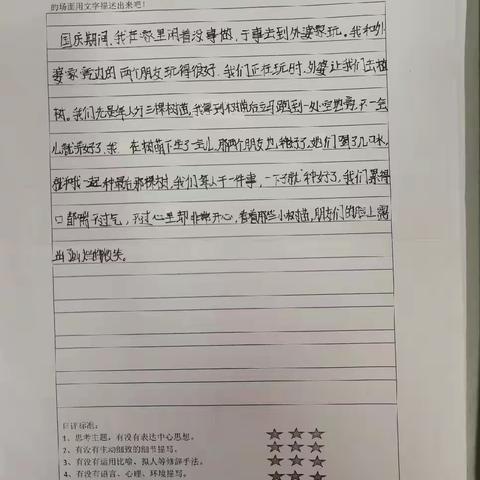 的场面用文字描述出来吧!
国庆期间,我在家里闲着没事做,于是去到外婆家玩。我和外
婆家旁边的两个朋友玩得很好,我们正在玩时,外婆让我们去植
树。我们先是每人分三棵树苗,我拿到树苗后立马跑到一处空地旁,不一会
儿就弄好了,我在树荫下坐了一会儿,那两个朋友也种好了,她们喝了几口水,
就和我一起种最后那棵树,我们每人干一件事,一下子就种好了,我们累得
口都喘不过气,不过心里却非常开心,看着那些小树苗,朋友们的脸上露
出的
自评标准:
1、思考主题,有没有表达中心思想。
2、有没有生动细致的细节描写。
3、有没有运用比喻、拟人等修辞手法。
4、有没有语言、心理、环境描写。